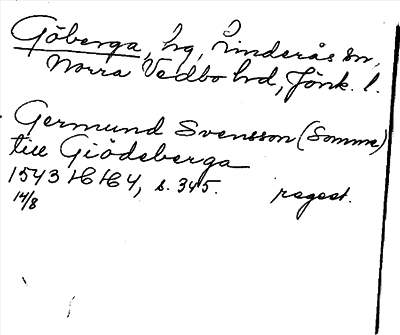 Göberga, hg, Linderås sn,
Norra Vedbo hd, Jönk. l.
Germund Svensson (Somme)
till Giödeberga
1543 HH 4, s. 345. regest.
14/8